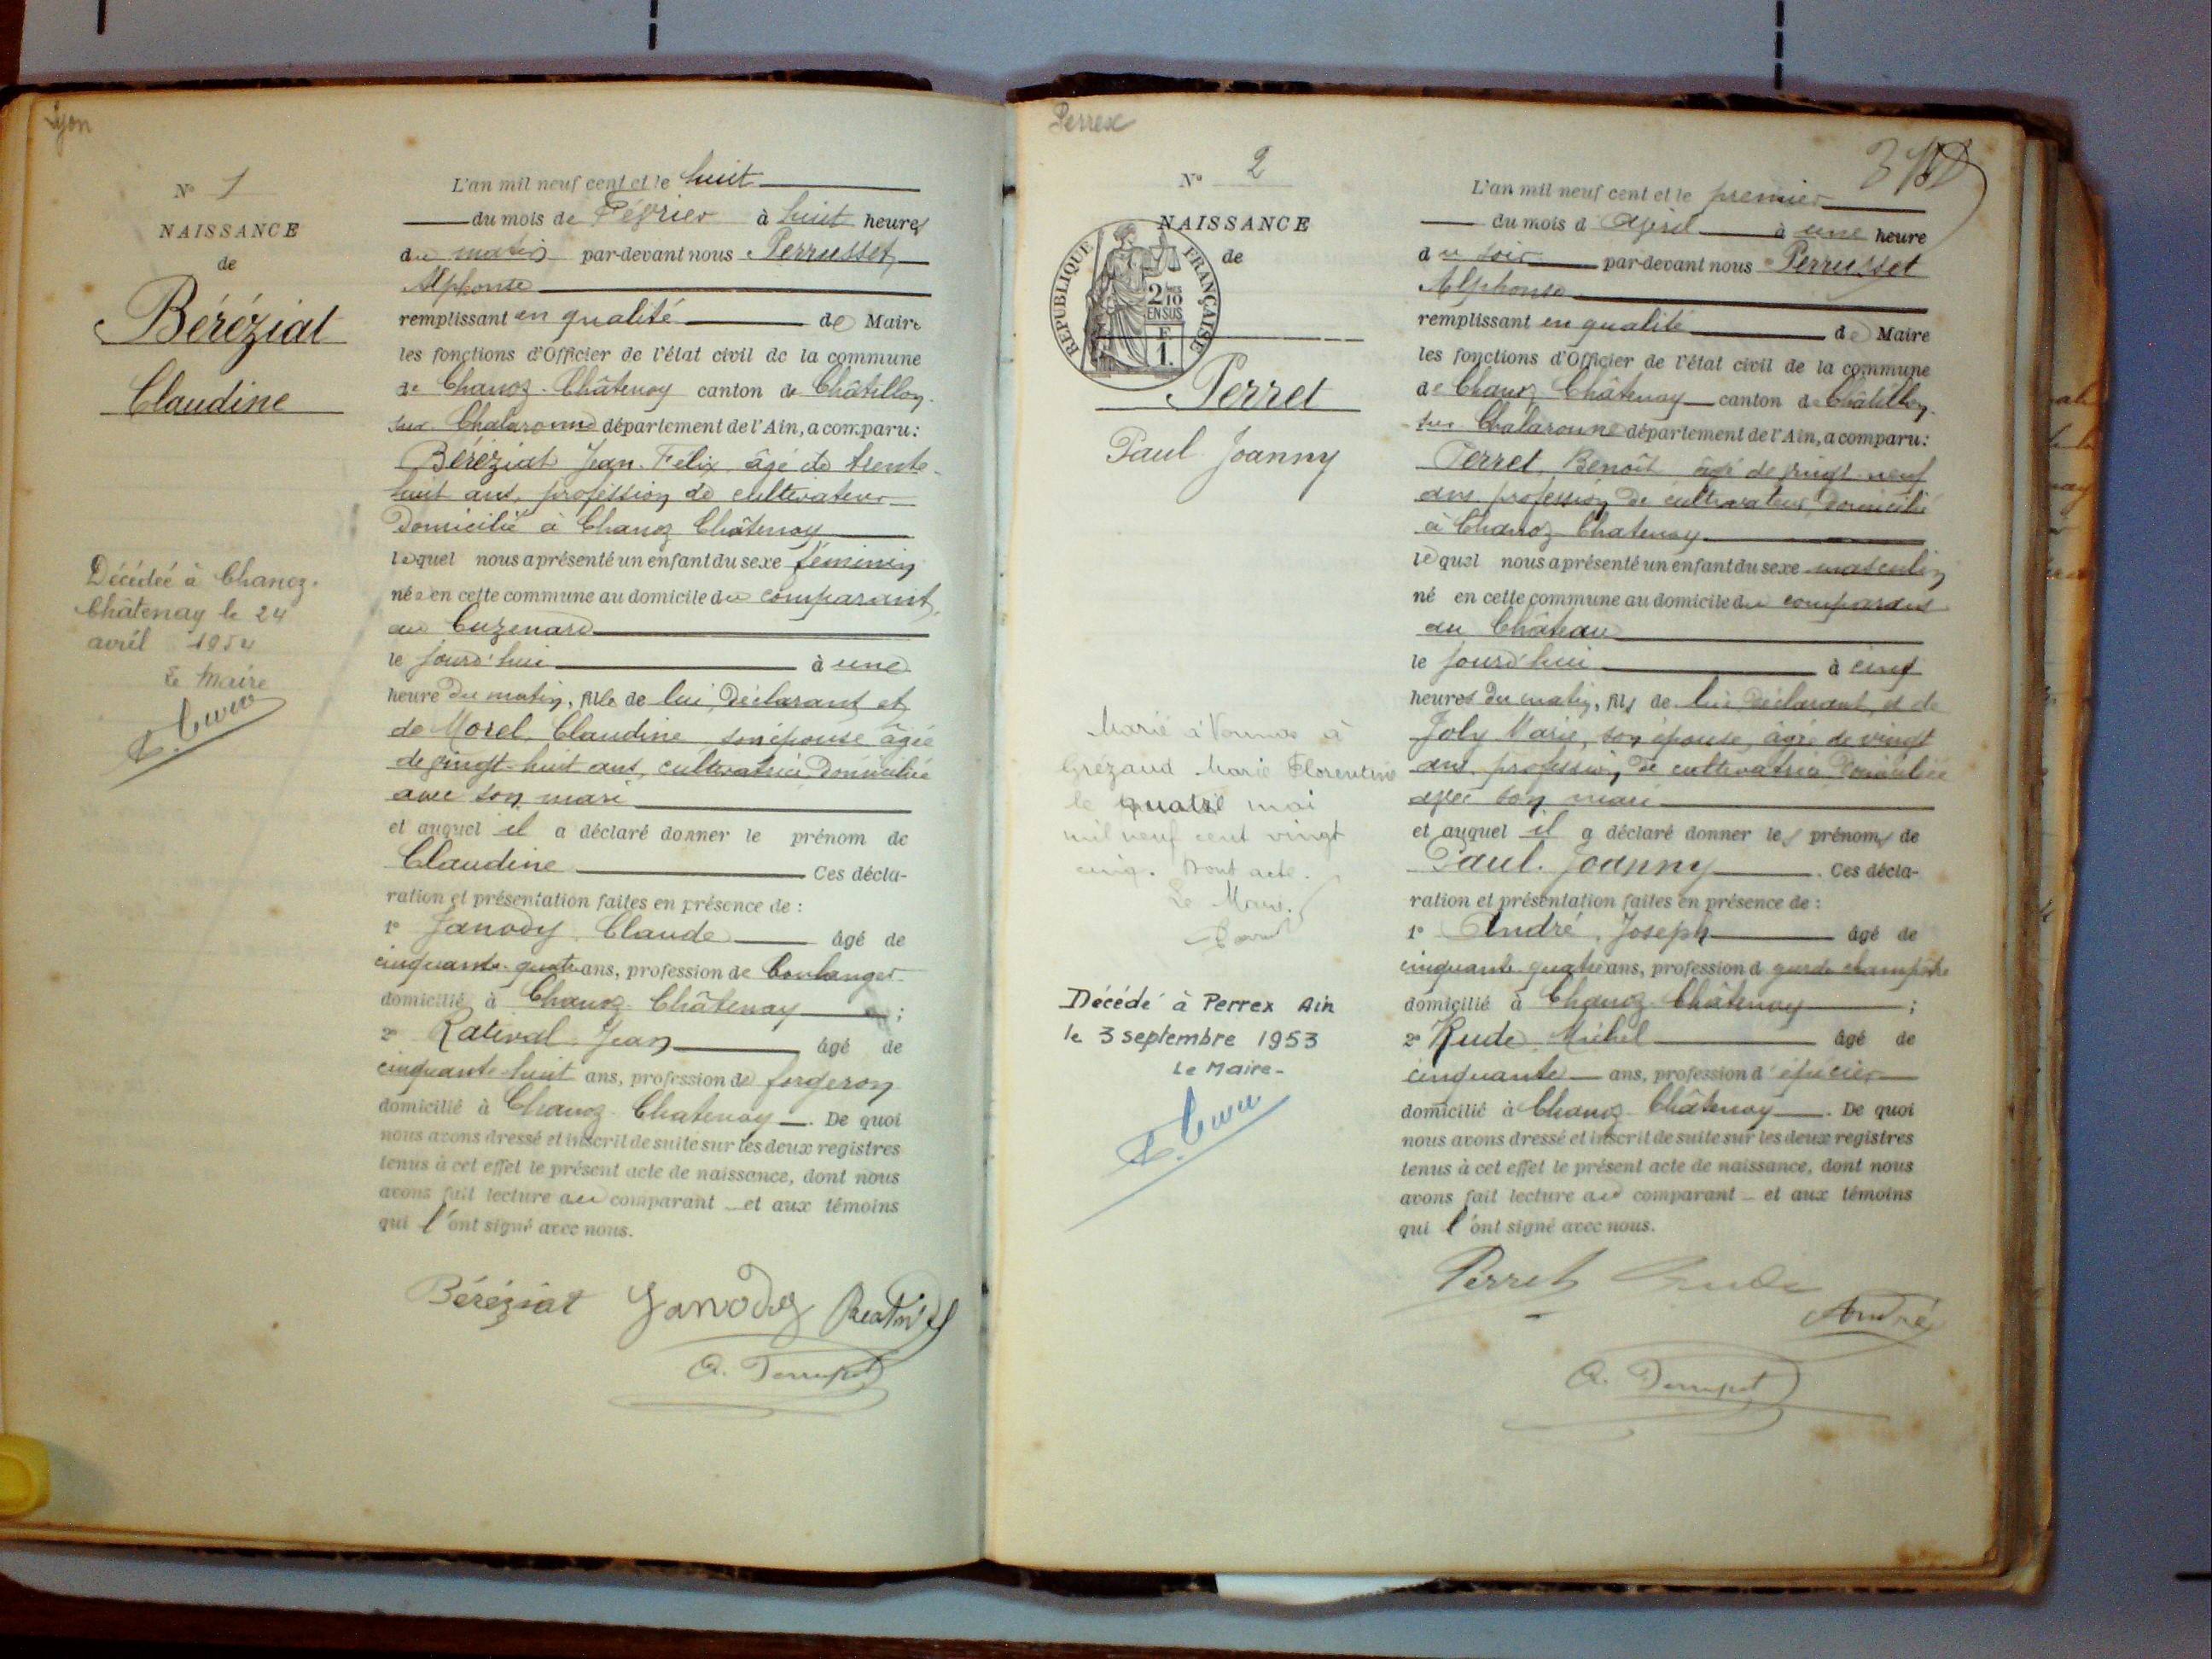 Lyon
N° 1
NAISSANCE
de
Béréziat
Claudine
Décédée à Chanoz-
Châtenay le 24
avril 1954
Le Maire
L'an mil neuf cent et le huit
du mois de Février à huit heures
du matin par-devant nous Perrusset
Alphonse
remplissant en qualité de Maire
les fonctions d'Officier de l'état civil de la commune
de Chanoz-Châtenay canton de Châtillon
sur Chalaronne département de l'Ain, a comparu:
Béréziat Jean-Felix âgé de trente-
huit ans, profession de cultivateur
domicilié à Chanoz Châtenay
lequel nous a présenté un enfant du sexe féminin
née en cette commune au domicile du comparant,
au Cuzenard
le jourd'hui à une
heure du matin, fille de lui, déclarant et
de Morel Claudine son épouse âgée
de vingt-huit ans, cultivatrice domiciliée
avec son mari
et auquel il a déclaré donner le prénom de
Claudine Ces décla-
ration et présentation faites en présence de :
1° Janody Claude âgé de
cinquante-quatre ans, profession de boulanger
domicilié à Chanoz-Châtenay ;
2° Rativel Jean âgé de
cinquante-huit ans, profession de forgeron
domicilié à Chanoz-Chatenay. De quoi
nous avons dressé et inscrit de suite sur les deux registres
tenus à cet effet le présent acte de naissance, dont nous
avons fait lecture au comparant et aux témoins
qui l'ont signé avec nous.
Béréziat Janody
Perrex
N° 2
NAISSANCE
de
RÉPUBLIQUE FRANÇAISE
2/10
EN SUS
F
1.
Perret
Paul Joanny
Marié à Vonnas à
Grézaud Marie Florentine
le quatre mai
mil neuf cent vingt
cinq. Dont acte.
Le Maire.
Décédé à Perrex Ain
le 3 septembre 1953
Le Maire-
L'an mil neuf cent et le premier
du mois d'Avril à une heure
du soir par-devant nous Perrusset
Alphonse
remplissant en qualité de Maire
les fonctions d'Officier de l'état civil de la commune
de Chanoz Châtenay canton de Châtillon
sur Chalaronne département de l'Ain, a comparu:
Perret, Benoît âgé de vingt-neuf
ans profession de cultivateur domicilié
à Chanoz-Chatenay
lequel nous a présenté un enfant du sexe masculin
né en cette commune au domicile du comparant
au Château
le jourd'hui à cinq
heures du matin, fils de lui déclarant, et de
Joly Marie, son épouse, âgée de vingt
ans, profession de cultivatrice domiciliée
avec son mari
et auquel il a déclaré donner les prénoms de
Paul. Joanny. Ces décla-
ration et présentation faites en présence de :
1° André, Joseph âgé de
cinquante quatre ans, profession d garde champêtre
domicilié à Chanoz-Châtenay ;
2° Rude Michel âgé de
cinquante ans, profession d'épicier
domicilié à Chanoz-Châtenay. De quoi
nous avons dressé et inscrit de suite sur les deux registres
tenus à cet effet le présent acte de naissance, dont nous
avons fait lecture au comparant et aux témoins
qui l'ont signé avec nous.
Perret Rude
André